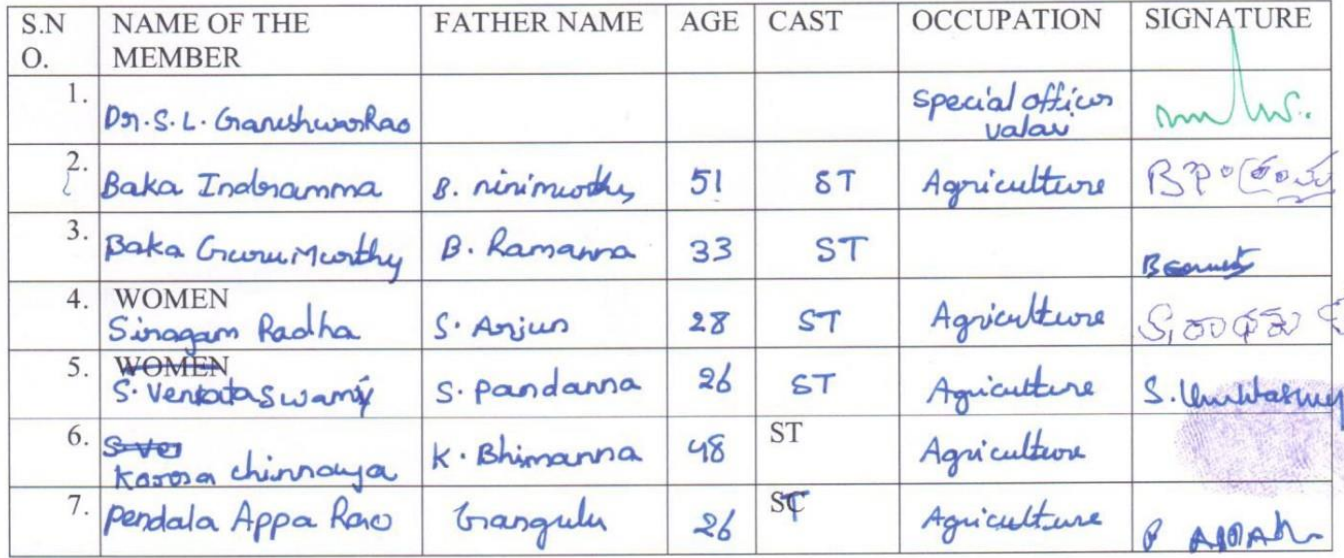 S.N O. NAME OF THE MEMBER FATHER NAME AGE CAST OCCUPATION SIGNATURE
1. Dr. S. L. Ganeshwar Rao Special officer
2. Baka Indramma B. 51 ST Agriculture
3. Baka Guru Murthy B. Ramanna 33 ST
4. WOMEN
Siragam Radha S. Arjun 28 ST Agriculture
5. WOMEN
S. Venkata Swamy S. Pandanna 26 ST Agriculture
6. K. Bhimanna 48 ST Agriculture
7. Pendala Appa Rao Gangulu 26 Agriculture